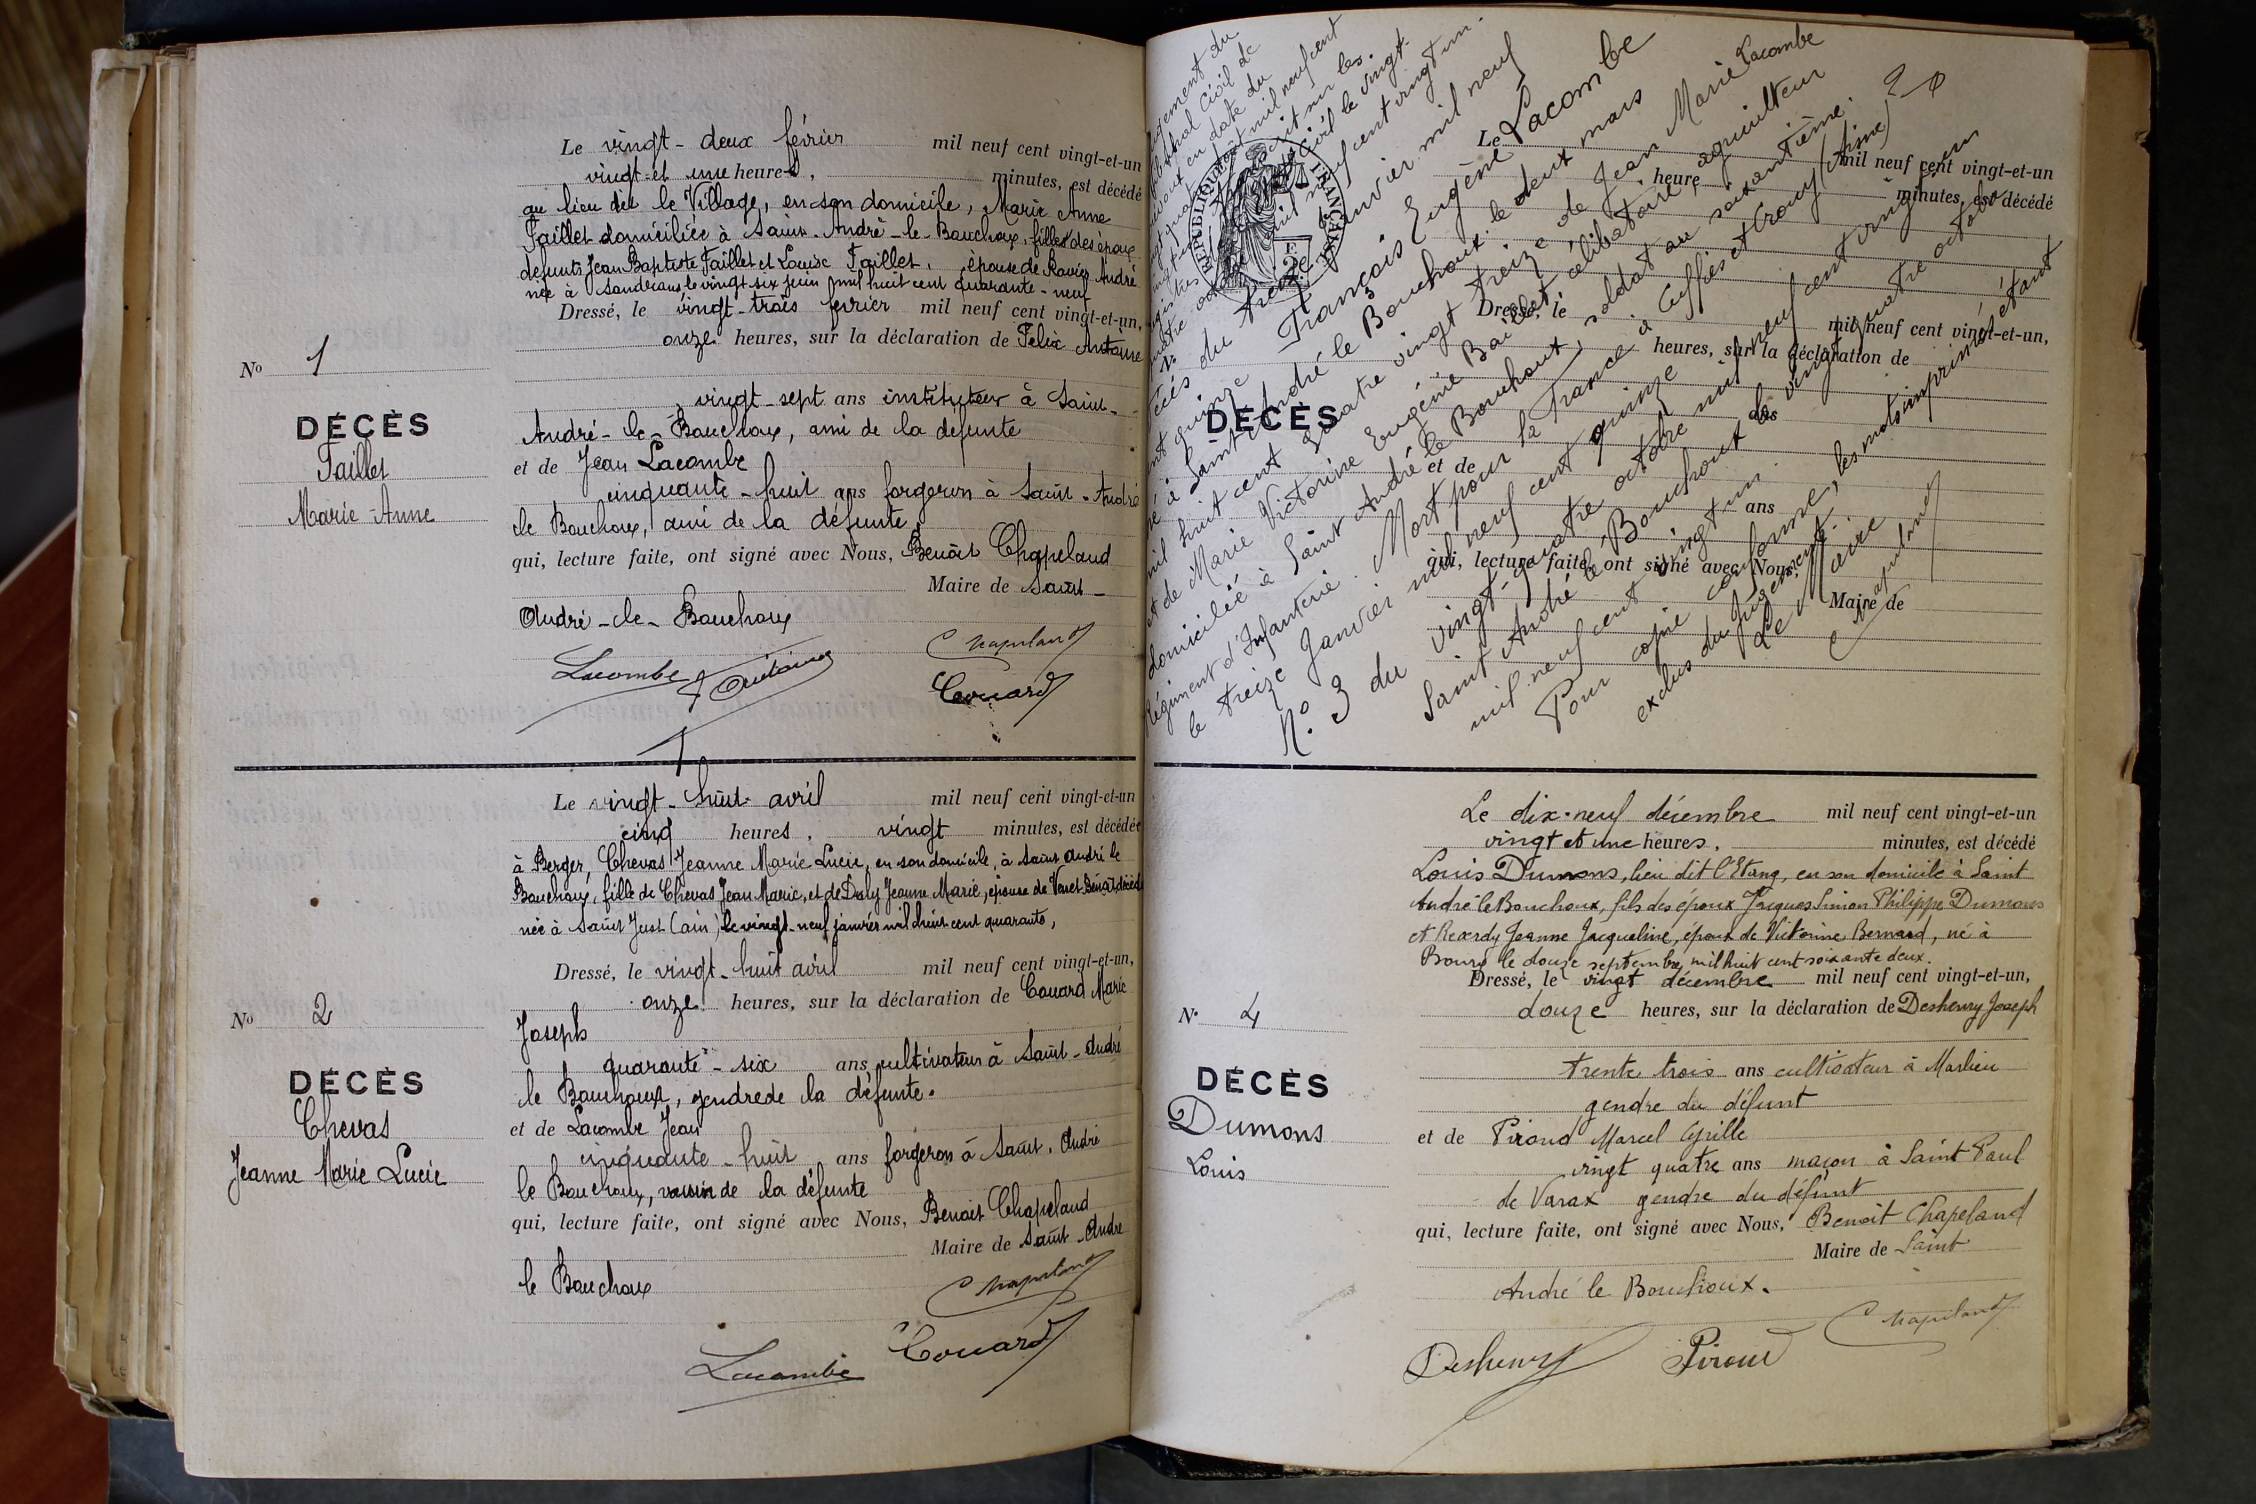 Le vingt-deux février mil neuf cent vingt-et-un
vingt-et une heures, minutes, est décédé
au lieu dit le Village, en son domicile, Marie Anne
Faillet domiciliée à Saint-André-le-Bouchoux, fille des époux
défunts Jean Baptiste Faillet et Louise Faillet, épouse de Ravier André
née à Sandrans le vingt-six juin mil huit cent quarante-neuf
Dressé, le vingt-trois février mil neuf cent vingt-et-un,
onze heures, sur la déclaration de Félix Antoine
No 1
vingt-sept ans instituteur à Saint-
DÉCÈS
André-le-Bouchoux, ami de la défunte
Faillet
et de Jean Lacombe
cinquante-huit ans forgeron à Saint-André
Marie-Anne
le Bouchoux, ami de la défunte,
qui, lecture faite, ont signé avec Nous, Benoît Chapeland
Maire de Saint-
André-le-Bouchoux
Chapeland
Lacombe F Antoine
Couard
Le vingt-huit avril mil neuf cent vingt-et-un
cinq heures, vingt minutes, est décédée
à Berger, Chevas Jeanne Marie Lucie, en son domicile, à Saint André le
Bouchoux, fille de Chevas Jean Marie, et de Jeanne Marie, épouse de
née à Saint Just (ain) le vingt-neuf janvier mil huit cent quarante,
Dressé, le vingt-huit avril mil neuf cent vingt-et-un,
onze heures, sur la déclaration de Couard Marie
No 2
Joseph
quarante-six ans cultivateur à Saint-André
DÉCÈS
le Bouchoux, gendre de la défunte.
Chevas
et de Lacombe Jean
cinquante-huit ans forgeron à Saint-André
Jeanne Marie Lucie
le Bouchoux, voisin de la défunte
qui, lecture faite, ont signé avec Nous, Benoît Chapeland
Maire de Saint-André
le Bouchoux
Chapeland
Couard
Lacombe
Le mil neuf cent vingt-et-un
heure minutes, est décédé
Dressé, le mil neuf cent vingt-et-un,
heures, sur la déclaration de
No
DÉCÈS
ans
et de
ans
qui, lecture faite, ont signé avec Nous,
Maire de
RÉPUBLIQUE FRANÇAISE
décès du treize janvier mil neuf
cent quinze François Eugène Lacombe
né à Saint André le Bouchoux le deux mars
mil huit cent quatre vingt treize de Jean Marie Lacombe
et de Marie Victorine Eugénie Baillet, célibataire, agriculteur
domicilié à Saint André le Bouchoux, soldat au soixantième
Régiment d'Infanterie. Mort pour la France à Cuffies et Crouy (Aisne)
le treize Janvier mil neuf cent quinze
No. 3 du vingt-quatre octobre mil neuf cent vingt un
Saint André le Bouchoux le vingt quatre octobre
mil neuf cent vingt un
Pour copie conforme, les mots imprimés étant
exclus du Jugement.
Le Maire
Chapeland
Le dix-neuf décembre mil neuf cent vingt-et-un
vingt et une heures, minutes, est décédé
Louis Dumons, lieu dit l'Etang, en son domicile à Saint
André le Bouchoux, fils des époux Jacques Simon Philippe Dumons
et Jeanne Jacqueline, époux de Victorine Bernard, né à
Bourg le douze septembre mil huit cent soixante deux.
Dressé, le vingt décembre mil neuf cent vingt-et-un,
douze heures, sur la déclaration de Deshenry Joseph
No 4
trente trois ans cultivateur à Marlieu
DÉCÈS
gendre du défunt
Dumons
et de Piroud Marcel Cyrille
Louis
vingt quatre ans maçon à Saint Paul
de Varax gendre du défunt
qui, lecture faite, ont signé avec Nous, Benoît Chapeland
Maire de Saint
André le Bouchoux.
Chapeland
Deshenry Piroud